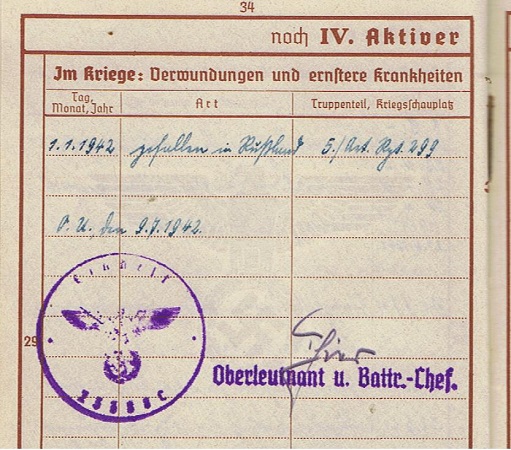 34
noch IV. Aktiver
Im Kriege: Verwundungen und ernstere Krankheiten
Tag, Monat, Jahr
Art
Truppenteil, Kriegsschauplatz
1.1.1942 gefallen in Rußland 5./Art. Rgt. 299
O. U., den 9.7.1942.
Einheit
29
Oberleutnant u. Battr.-Chef.